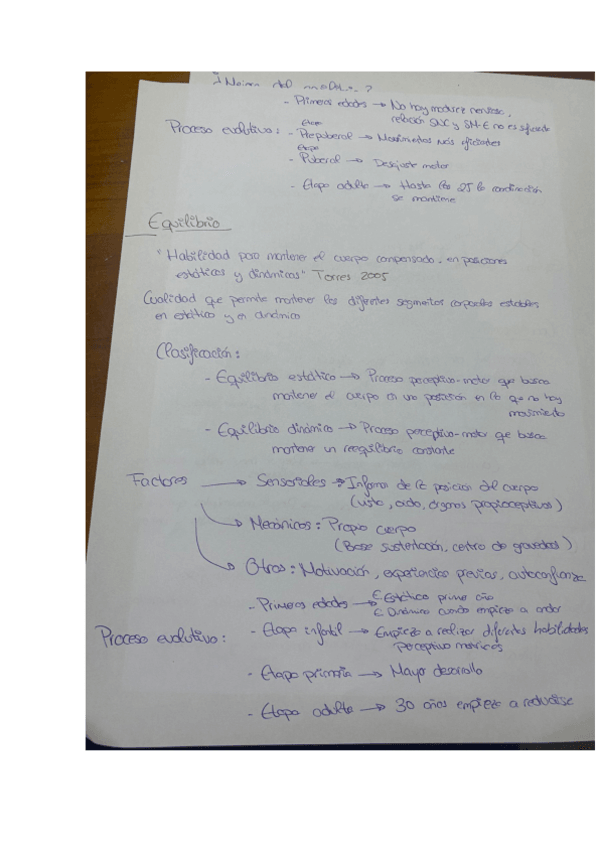 - Primeras edades → No hay madurez nerviosa,
relación SNC y SM-E no es suficiente
Proceso evolutivo: - Etapa Prepuberal → Movimientos más eficientes
- Etapa Puberal → Desajuste motor
- Etapa adulta → Hasta los 25 la coordinación
se mantiene
Equilibrio
"Habilidad para mantener el cuerpo compensado, en posiciones
estáticas y dinámicas" Torres 2005
Cualidad que permite mantener los diferentes segmentos corporales estables
en estático y en dinámico
Clasificación:
- Equilibrio estático → Proceso perceptivo-motor que busca
mantener el cuerpo en una posición en la que no hay
movimiento
- Equilibrio dinámico → Proceso perceptivo-motor que busca
mantener un reequilibrio constante
Factores → Sensoriales → Informan de la posición del cuerpo
(vista, oido, órganos propioceptivos)
→ Mecánicos: Propio cuerpo
(Base sustentación, centro de gravedad)
→ Otros: Motivación, experiencias previas, autoconfianza
- Primeras edades → E. Estático primer año
E. Dinámico cuando empieza a andar
Proceso evolutivo: - Etapa infantil → Empieza a realizar diferentes habilidades
perceptivo motrices
- Etapa primaria → Mayor desarrollo
- Etapa adulta → 30 años empieza a reducirse